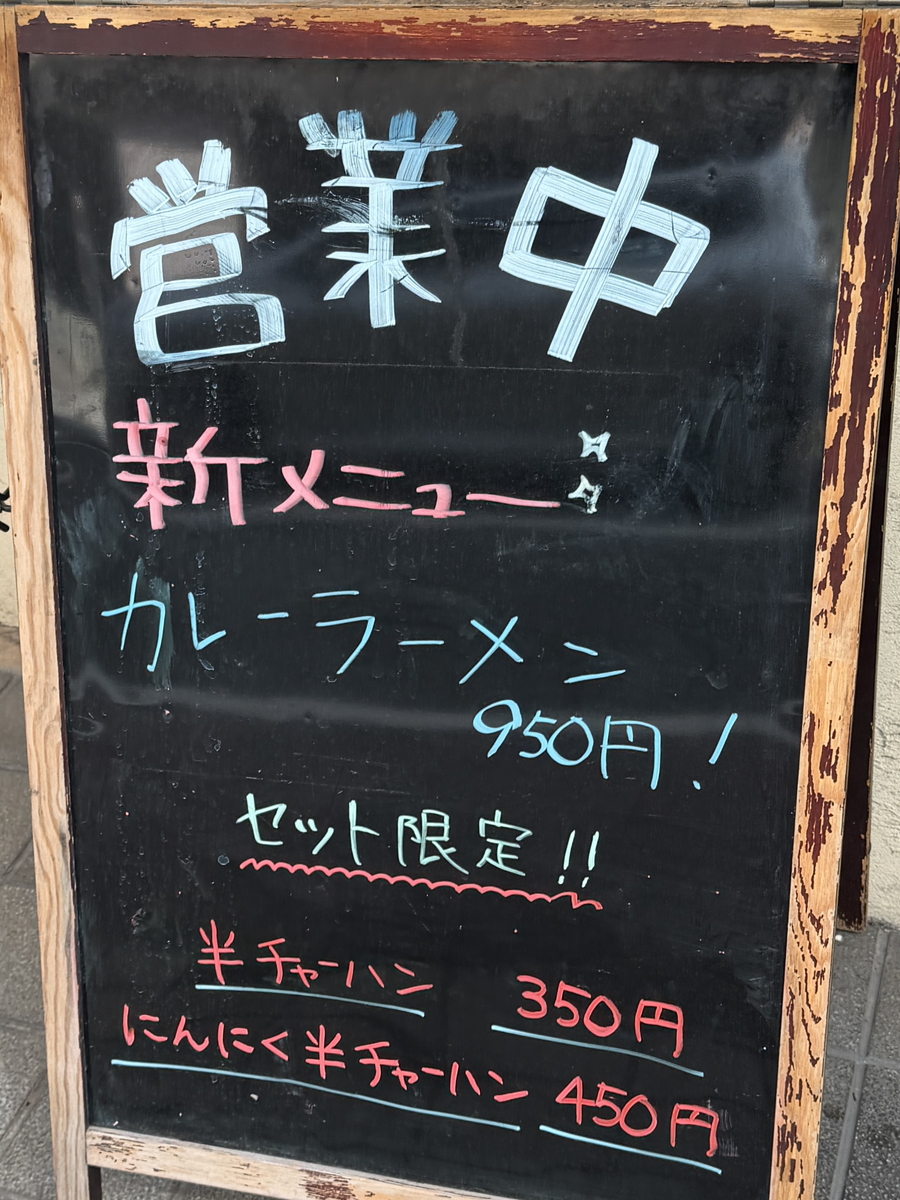 営業中
新メニュー
カレーラーメン
950円!
セット限定!!
半チャーハン 350円
にんにく半チャーハン 450円